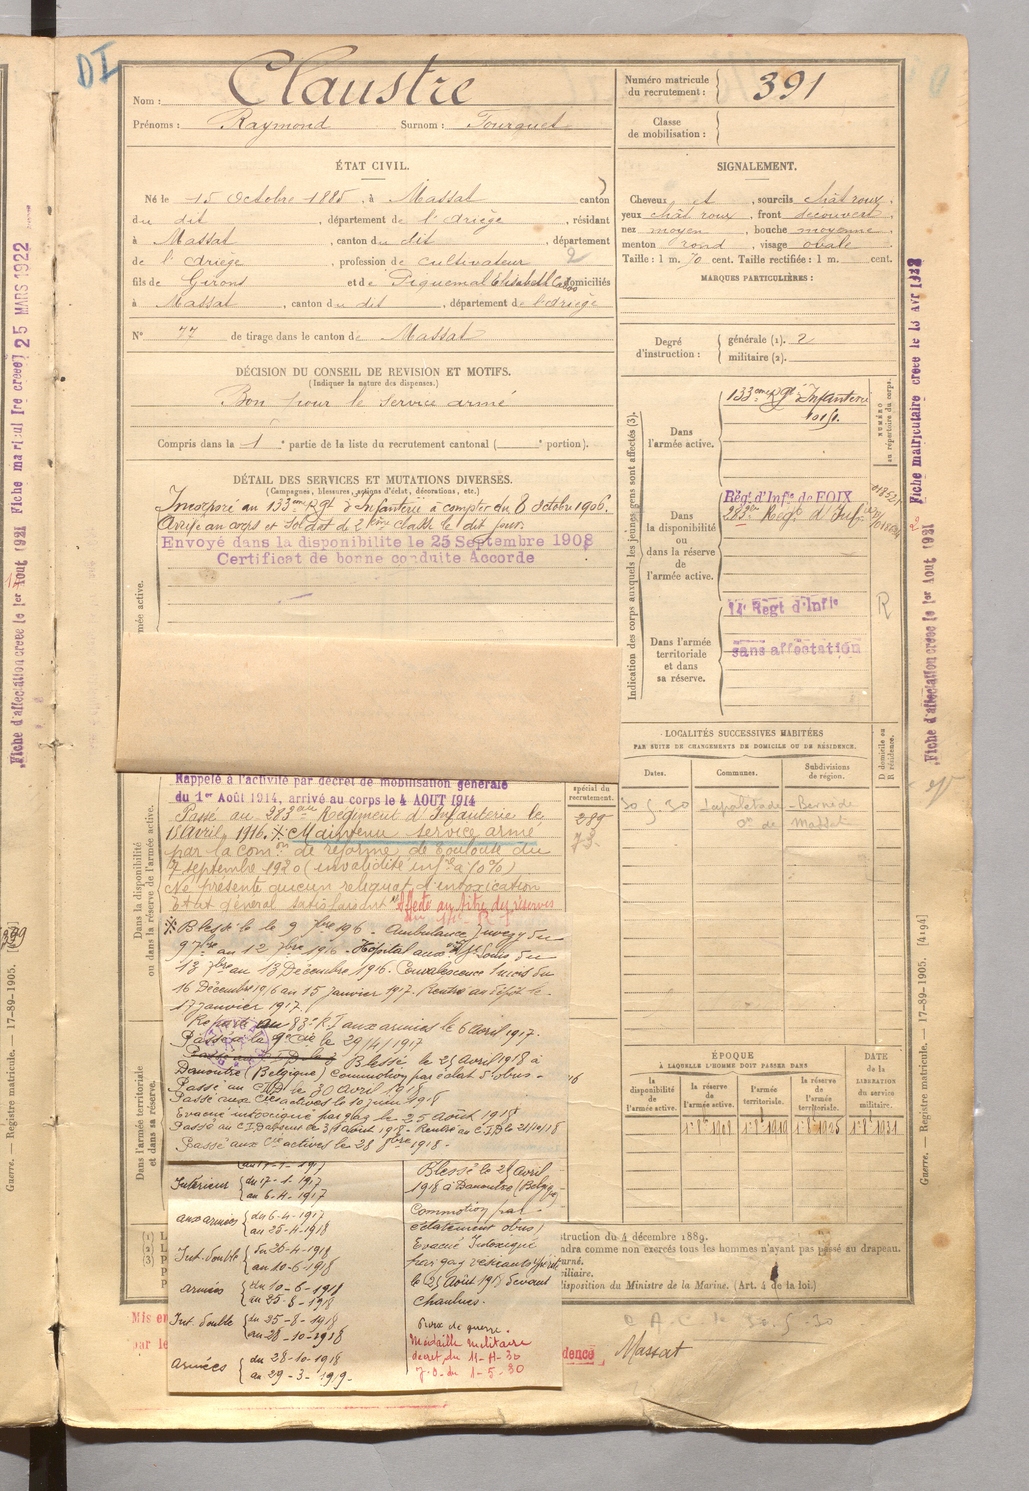 DI
Nom : Claustre
Prénoms : Raymond Surnom :
Numéro matricule du recrutement : 391
Classe de mobilisation :
ÉTAT CIVIL.
Né le 15 Octobre 1885, à Massat canton
du dit, département de l'Ariège, résidant
à Massat, canton du dit, département
de l'Ariège, profession de cultivateur
fils de Girons et de Piquemal Elisabeth domiciliés
à Massat, canton du dit, département de l'Ariège
N° 77 de tirage dans le canton de Massat
DÉCISION DU CONSEIL DE REVISION ET MOTIFS.
(Indiquer la nature des dispenses.)
Bon pour le service armé
Compris dans la 1e partie de la liste du recrutement cantonal ( e portion).
DÉTAIL DES SERVICES ET MUTATIONS DIVERSES.
(Campagnes, blessures, actions d'éclat, décorations, etc.)
Incorporé au 133eme Rgt d'Infanterie à compter du 8 octobre 1906.
Arrivé au corps et Soldat de 2eme classe le dit jour.
Envoyé dans la disponibilite le 25 Septembre 1908
Certificat de bonne conduite Accorde
SIGNALEMENT.
Cheveux et, sourcils chât roux
yeux chât roux, front découvert
nez moyen, bouche moyenne
menton rond, visage ovale
Taille : 1 m. 70 cent. Taille rectifiée : 1 m. cent.
MARQUES PARTICULIÈRES :
Degré d'instruction : générale (1). 2
militaire (2).
Indication des corps auxquels les jeunes gens sont affectés (3).
NUMÉRO au répertoire du corps.
Dans l'armée active.
133eme Rgt d'Infanterie
Dans la disponibilité ou dans la réserve de l'armée active.
Régt d'Infie de FOIX
283eme Régt d'Inf
Dans l'armée territoriale et dans sa réserve.
14e Regt d'Infie
sans affectation
R
LOCALITÉS SUCCESSIVES HABITÉES
PAR SUITE DE CHANGEMENTS DE DOMICILE OU DE RÉSIDENCE.
Dates. Communes. Subdivisions de région. D domicile ou R résidence.
30.5.30
Cne de Massat
Rappelé à l'activité par décret de mobilisation générale
du 1er Août 1914, arrivé au corps le 4 AOUT 1914
Passé au 283eme Régiment d'Infanterie le
18 Avril 1916. Maintenu service armé
par la Comon de réforme de Toulouse du
7 septembre 1920 (invalidité infre à 10%)
Ne présente aucun reliquat d'intoxication
Etat général satisfaisant Affecté au titre des réserves
spécial du recrutement.
Blessé le 9 7bre 1916 - Ambulance Juvezy du
9 7bre au 12 7bre 1916 - Hôpital auxre St Louis du
13 7bre au 13 Décembre 1916. Convalescence 1 mois du
16 Décembre 1916 au 15 janvier 1917. Rentré au dépôt le
17 janvier 1917.
Reparti au 83e R.I aux armées le 6 avril 1917.
Passé à la 9e Cie le 29/4/1917
Blessé le 25 Avril 1918 à
Danoutre (Belgique) commotion par éclat d'obus -
Passé au C.I.D le 30 Avril 1918
Passé aux Cies actives le 10 juin 1918
Evacué intoxiqué par gaz le 25 Août 1918
Passé au C.I.D absent de 31 août 1918 - Rentré au C.I.D le 21/10/18
Passé aux Cies actives le 28 8bre 1918.
au 17-1-1917
Intérieur { du 17-1-1917
au 6-4-1917
aux armées { du 6-4-1917
au 25-4-1918
Int. double { du 26-4-1918
au 10-6-1918
armées { du 10-6-1918
au 25-8-1918
Int. double { du 25-8-1918
au 28-10-1918
armées { du 28-10-1918
au 29-3-1919
Blessé le 25 avril
1918 à Danoutre (Belgique)
Commotion par
éclatement obus,
Evacué Intoxiqué
par gaz vésicants ypérite
le 25 Août 1918 devant
Chaulnes.
Croix de guerre.
Médaille militaire
décret du 11-4-30
J.O. du 1-5-30
ÉPOQUE À LAQUELLE L'HOMME DOIT PASSER DANS
la disponibilité de l'armée active.
la réserve de l'armée active.
l'armée territoriale.
la réserve de l'armée territoriale.
DATE de la LIBÉRATION du service militaire.
struction du 4 décembre 1889.
ndra comme non exercés tous les hommes n'ayant pas passé au drapeau.
urné.
iliaire.
disposition du Ministre de la Marine. (Art. 4 de la loi.)
Mis en
par le
dence
Massat
Dans la disponibilité ou dans la réserve de l'armée active.
Dans l'armée territoriale et dans sa réserve.
Fiche matriculaire creee le 13 Avr 1922
Fiche d'affectation creee le 1er Aout 1921
Fiche matricul Ire creee 25 MARS 1922
Fiche d'affectation creee le 1er Aout 1921
Guerre. — Registre matricule. — 17-89-1905. [4194]
Guerre. — Registre matricule. — 17-89-1905.